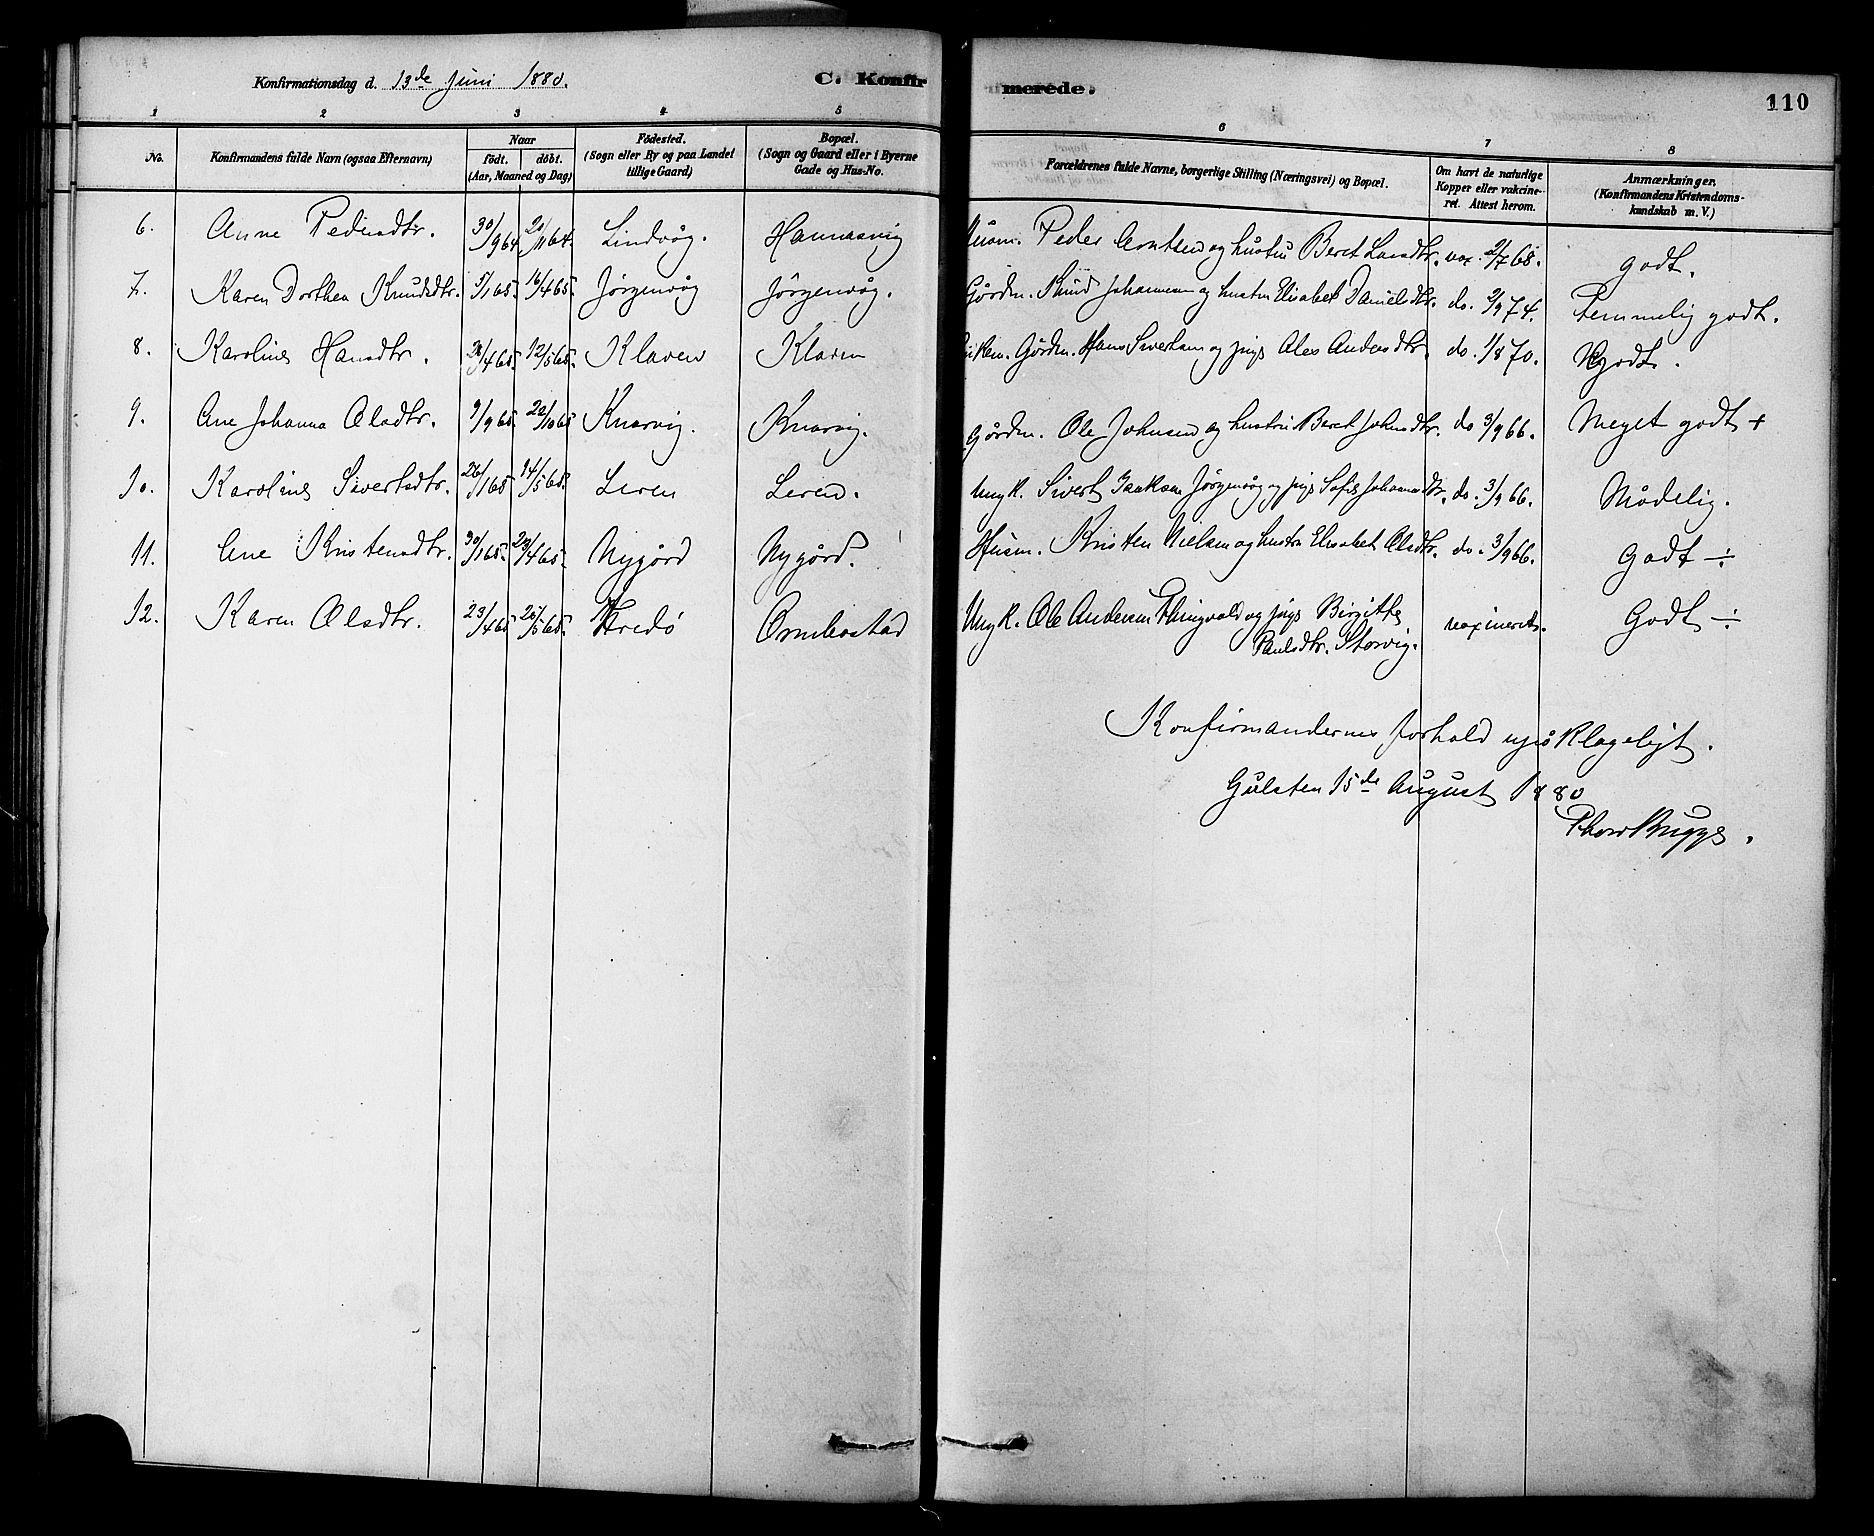 Konfirmationsdag d. 13de Juni 1880.
C. Konfirmerede.
110
1 2 3 4 5 6 7 8
No.
Konfirmandens fulde Navn (ogsaa Efternavn)
Naar
födt. döbt.
(Aar, Maaned og Dag)
Födested.
(Sogn eller By og paa Landet
tillige Gaard)
Bopæl.
(Sogn og Gaard eller i Byerne
Gade og Hus-No.
Forældrenes fulde Navne, borgerlige Stilling (Næringsvei) og Bopæl.
Om havt de naturlige
Kopper eller vakcine-
ret. Attest herom.
Anmærkninger.
(Konfirmandens Kristendoms-
kundskab m. V.)
6. Anne Pedersdtr. 30/9 64 Lindvåg. Hannasvig Husm. Peder Arntsen og hustru Beret Larsdtr. vax. 2/7 68. godt.
7. Karen Dorthea Knudsdtr. 5/1 65. 16/4 65. Jörgenvåg Jörgenvåg. Gårdm. Knud Johannesen og hustru Elisabet Danielsdtr. do. 2/9 74. Temmelig godt.
8. Karoline Hansdtr. /4 65. 12/5 65. Klaven Klaven Gårdm. Hans Sivertsen og pige Andersdtr. do. 1/8 70. godt.
9. Ane Johanna Olsdtr. 9/9 65 22/10 65 Knarvig. Knarvig. Gårdm. Ole Johnsen og hustru Beret Johnsdtr. do 3/9 66. Meget godt +
10. Karoline Sivertsdtr. 26/1 65 14/5 65. Leren Leren. Ungk. Sivert Isaksen Jörgenvåg og pige Sofie Johannesdtr. do. 3/9 66. Mådelig.
11. Ane Kristensdtr. 30/1 65. /4 65. Nygård Nygård. Husm. Kristen Nielsen og hustru Elisabet Olsdtr. do. 3/9 66. Godt ÷
12. Karen Olsdtr. 23/4 65 25/5 65. Fredö Ormbostad Ungk. Ole Andersen Thingvold og pige Birgitte vaxineret. Godt ÷
Paulsdtr. Storvig.
Konfirmandernes forhold upåklageligt.
Gulsten 15de August 1880
Thorv Bugge.